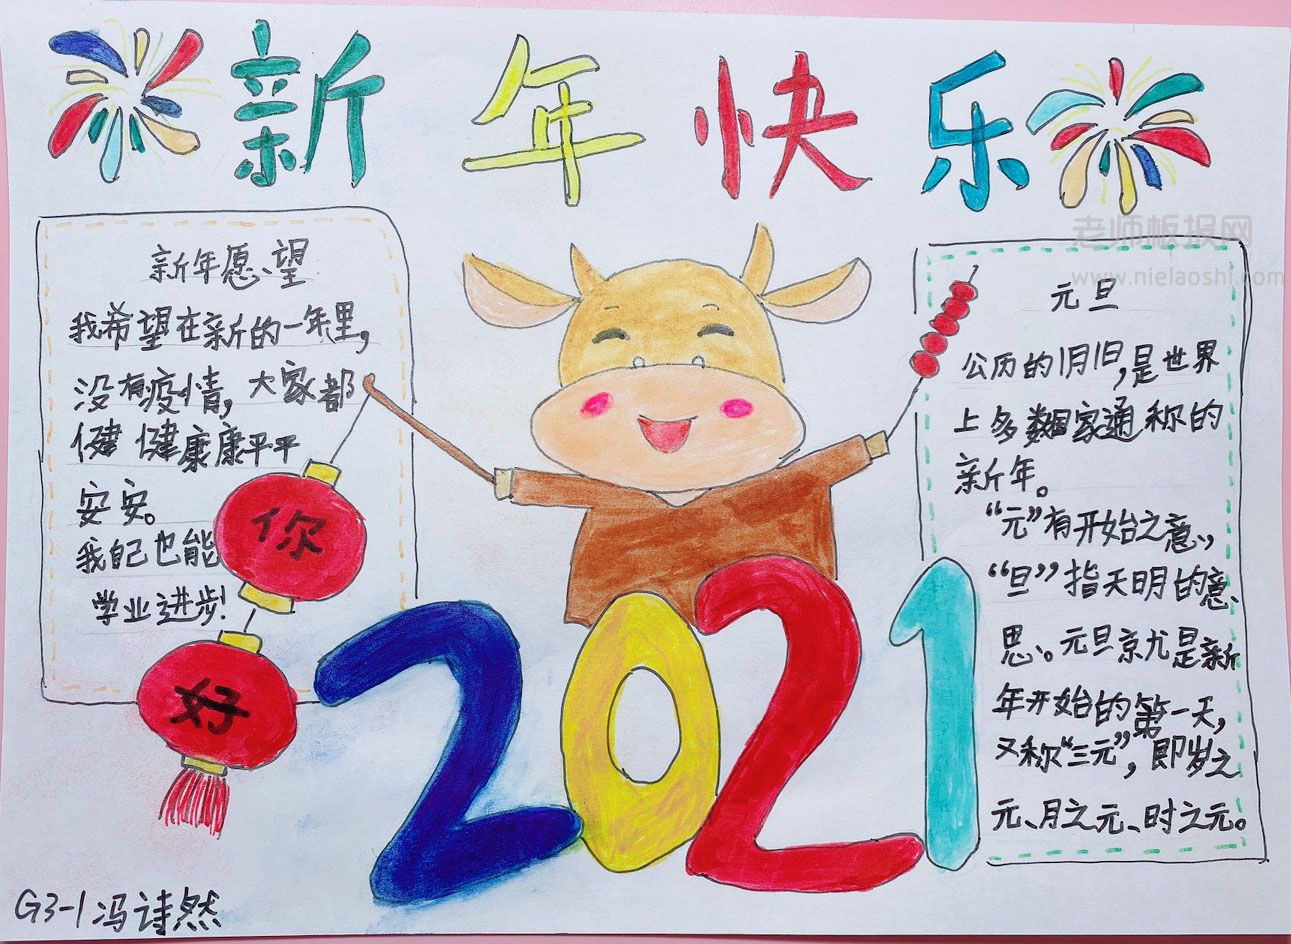 新年快乐
老师板报网
www.nielaoshi.com
新年愿望
我希望在新的一年里,
没有疫情,大家都
健健康康平平
安安。
我自己也能
学业进步!
你
好
2021
元旦
公历的1月1日,是世界
上多数国家通称的
新年。
“元”有开始之意,
“旦”指天明的意
思。元旦就是新
年开始的第一天,
又称“三元”,即岁之
元、月之元、时之元。
G3-1冯诗然